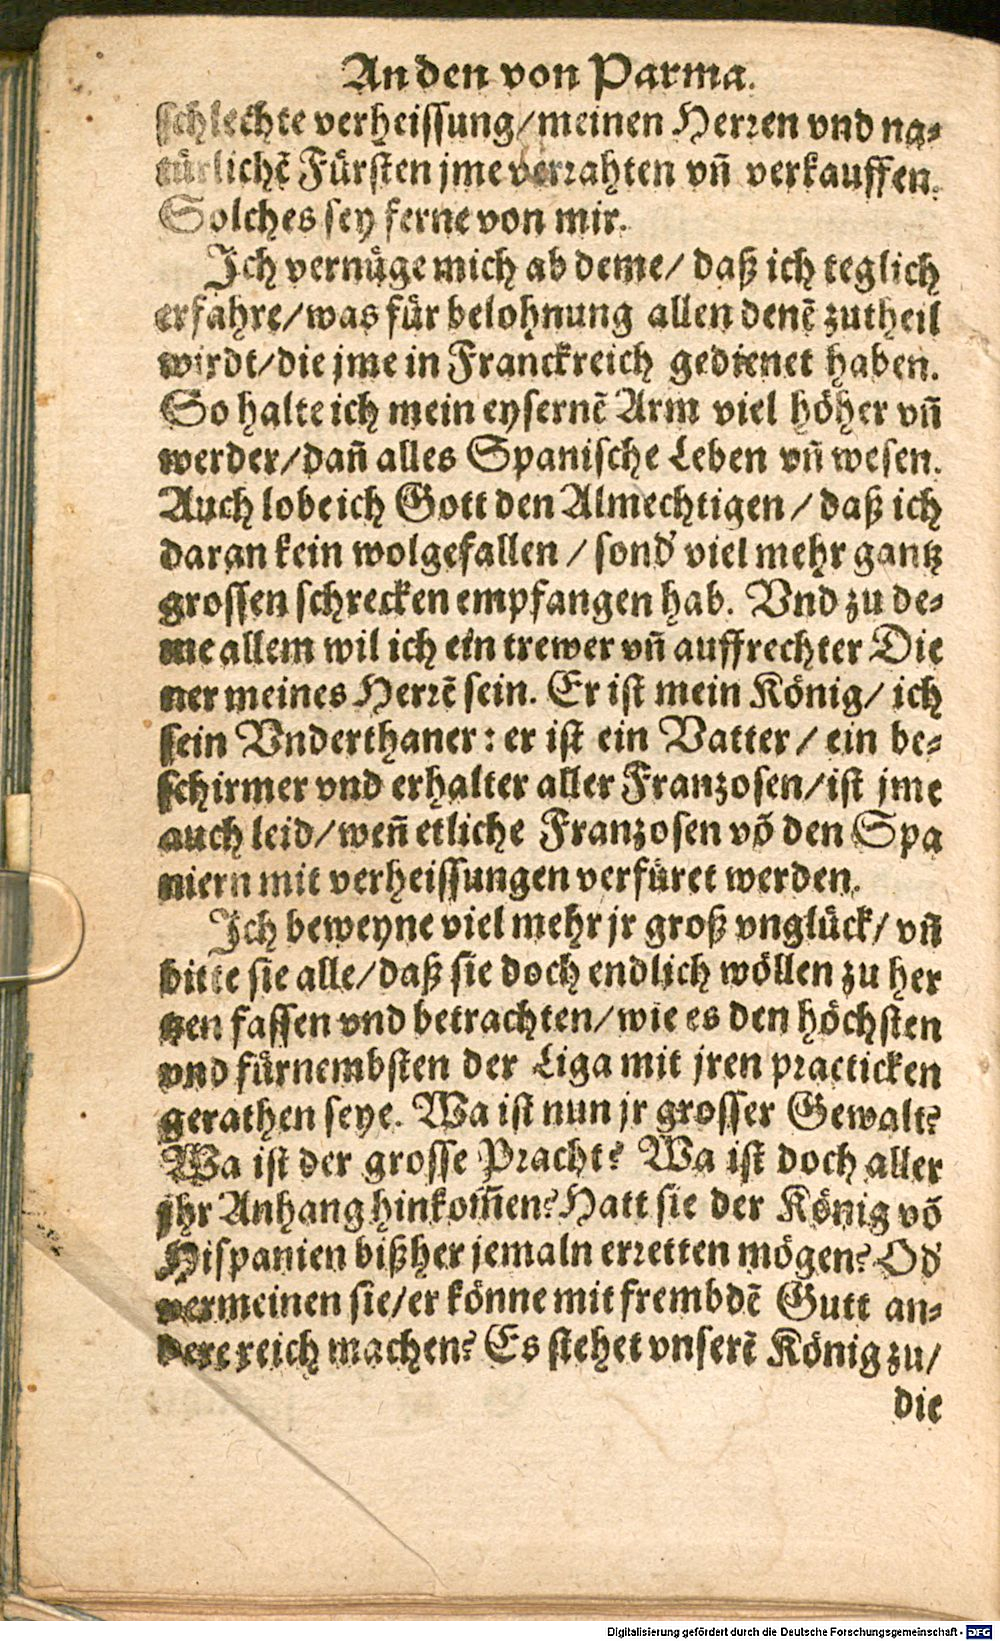 An den von Parma.
schlechte verheissung/meinen Herren vnd na-
türlichē Fürsten jme verrahten vñ verkauffen.
Solches sey ferne von mir.
Ich vernüge mich ab deme/ daß ich teglich
erfahre/was für belohnung allen denē zutheil
wirdt/die jme in Franckreich gedienet haben.
So halte ich mein eysernē Arm viel höher vñ
werder/dañ alles Spanische Leben vñ wesen.
Auch lobe ich Gott den Almechtigen/ daß ich
daran kein wolgefallen/ sond' viel mehr gantz
grossen schrecken empfangen hab. Vnd zu de-
me allem wil ich ein trewer vñ auffrechter Die
ner meines Herrē sein. Er ist mein König/ ich
sein Vnderthaner: er ist ein Vatter/ ein be-
schirmer vnd erhalter aller Franzosen/ist jme
auch leid/weñ etliche Franzosen võ den Spa
niern mit verheissungen verfüret werden.
Ich beweyne viel mehr jr groß vnglück/ vñ
bitte sie alle/daß sie doch endlich wöllen zu her
tzen fassen vnd betrachten/wie es den höchsten
vnd fürnembsten der Liga mit jren practicken
gerathen seye. Wa ist nun jr grosser Gewalt?
Wa ist der grosse Pracht? Wa ist doch aller
jhr Anhang hinkom̄en? Hatt sie der König võ
Hispanien bißher jemaln erretten mögen? Od'
vermeinen sie/er könne mit frembdē Gutt an-
dere reich machen? Es stehet vnserē König zu/
die
Digitalisierung gefördert durch die Deutsche Forschungsgemeinschaft - DFG